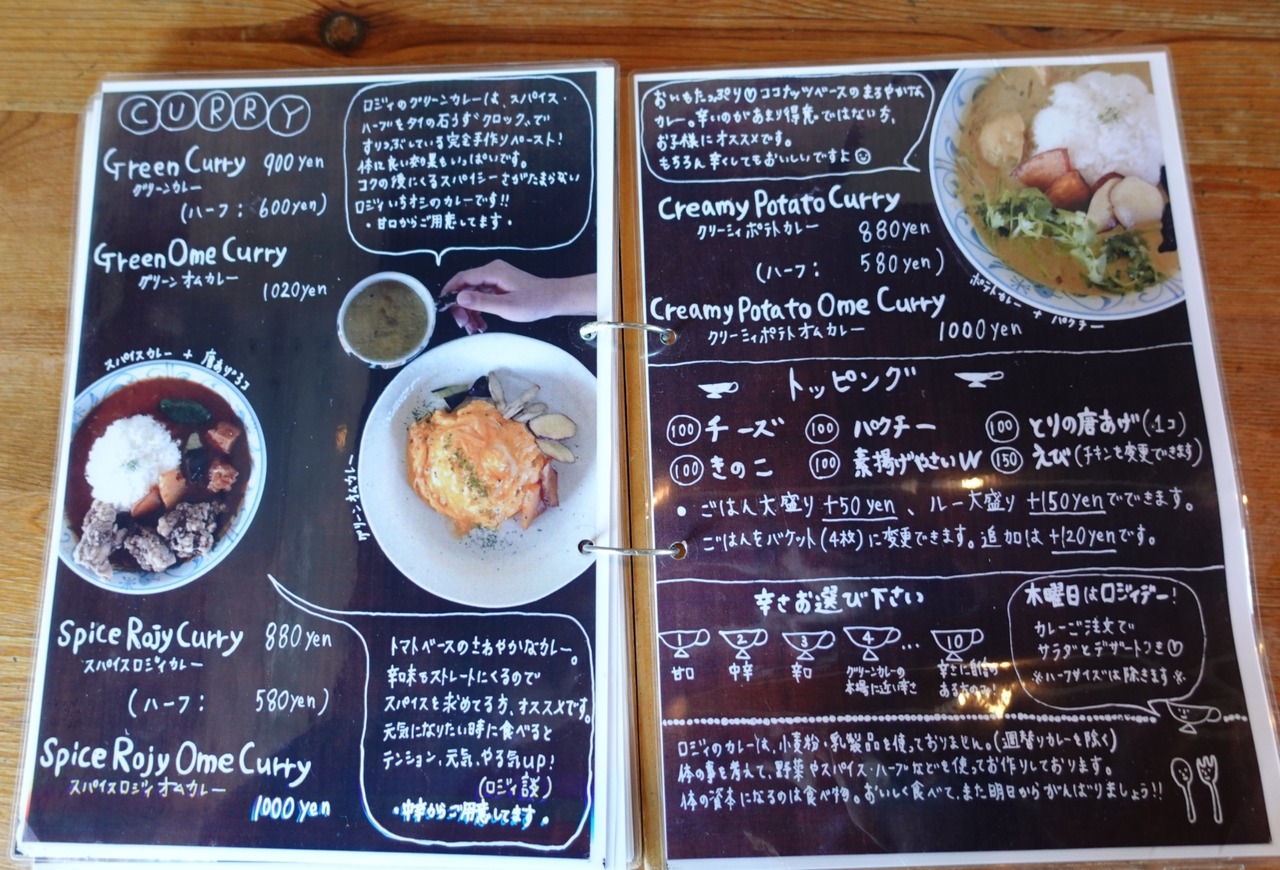 CURRY
Green Curry 900 yen
グリーンカレー
(ハーフ: 600yen)
Green Ome Curry
グリーンオムカレー
1020 yen
ロジィのグリーンカレーは、スパイス・
ハーブをタイの石うす"クロック"で
すりつぶしている完全手作りペースト!
体に良い効果もいっぱいです。
コクの後にくるスパイシーさがたまらない
ロジィいちオシのカレーです!!
・甘口からご用意してます・
スパイスカレー + 唐あげ3コ
グリーンオムカレー
Spice Rojy Curry 880 yen
スパイスロジィカレー
(ハーフ: 580yen)
Spice Rojy Ome Curry
スパイスロジィオムカレー
1000 yen
トマトベースのさわやかなカレー。
辛味もストレートにくるので
スパイスを求めてる方、オススメです。
元気になりたい時に食べると
テンション、元気、やる気up!
(ロジィ談)
・中辛からご用意してます・
おいもたっぷり♡ココナッツベースのまろやかな
カレー。辛いのがあまり得意ではない方、
お子様にオススメです。
もちろん辛くしてもおいしいですよ☺
Creamy Potato Curry
クリーミィポテトカレー 880yen
(ハーフ: 580yen)
ポテトカレー + パクチー
Creamy Potato Ome Curry
クリーミィポテトオムカレー 1000yen
トッピング
100 チーズ 100 パクチー 100 とりの唐あげ(1コ)
100 きのこ 100 素揚げやさいW 150 えび(チキンを変更できます)
• ごはん大盛り +50 yen、ルー大盛り +150yenでできます。
ごはんをバケット(4枚)に変更できます。追加は+120yenです。
辛さお選び下さい
1 2 3 4 … 10
甘口 中辛 辛口 グリーンカレーの 辛さに自信の
本場に近い辛さ ある方のみ!
木曜日はロジィデー!
カレーご注文で
サラダとデザートつき♡
※ハーフサイズは除きます※
ロジィのカレーは、小麦粉・乳製品を使っておりません。(週替りカレーを除く)
体の事を考えて、野菜やスパイス・ハーブなどを使ってお作りしております。
体の資本になるのは食べ物。おいしく食べて、また明日からがんばりましょう!!